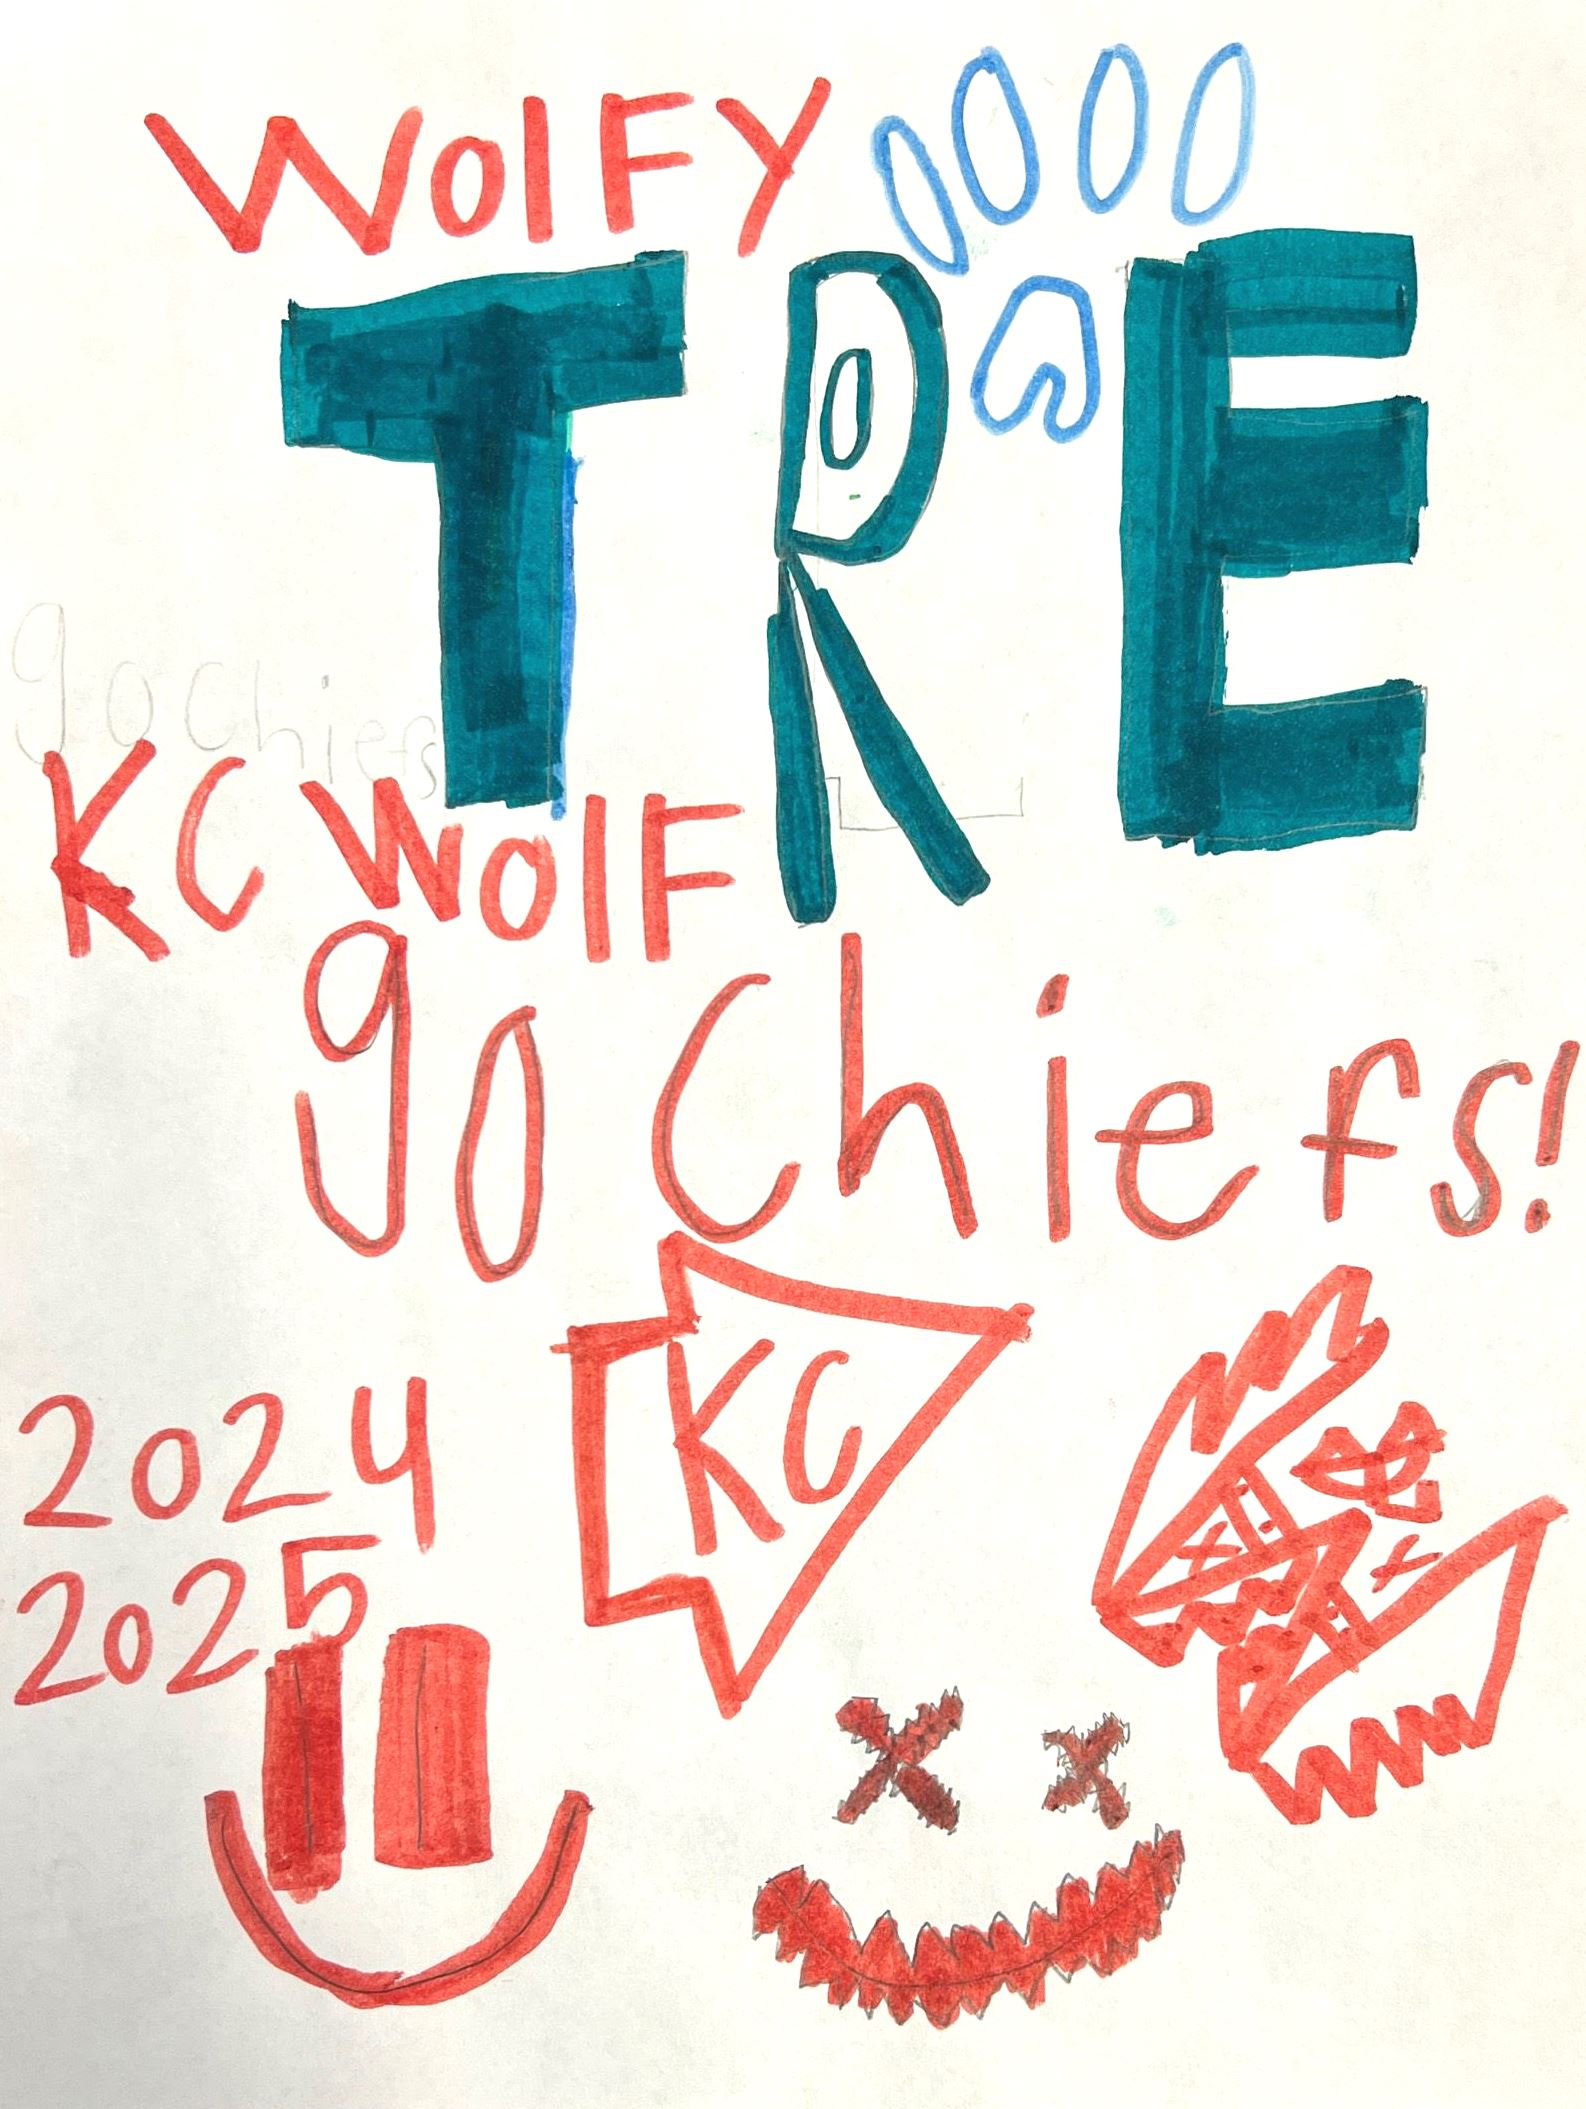 WolFy
TRE
go Chiefs
KC WolF
go Chiefs!
KC
2024
2025